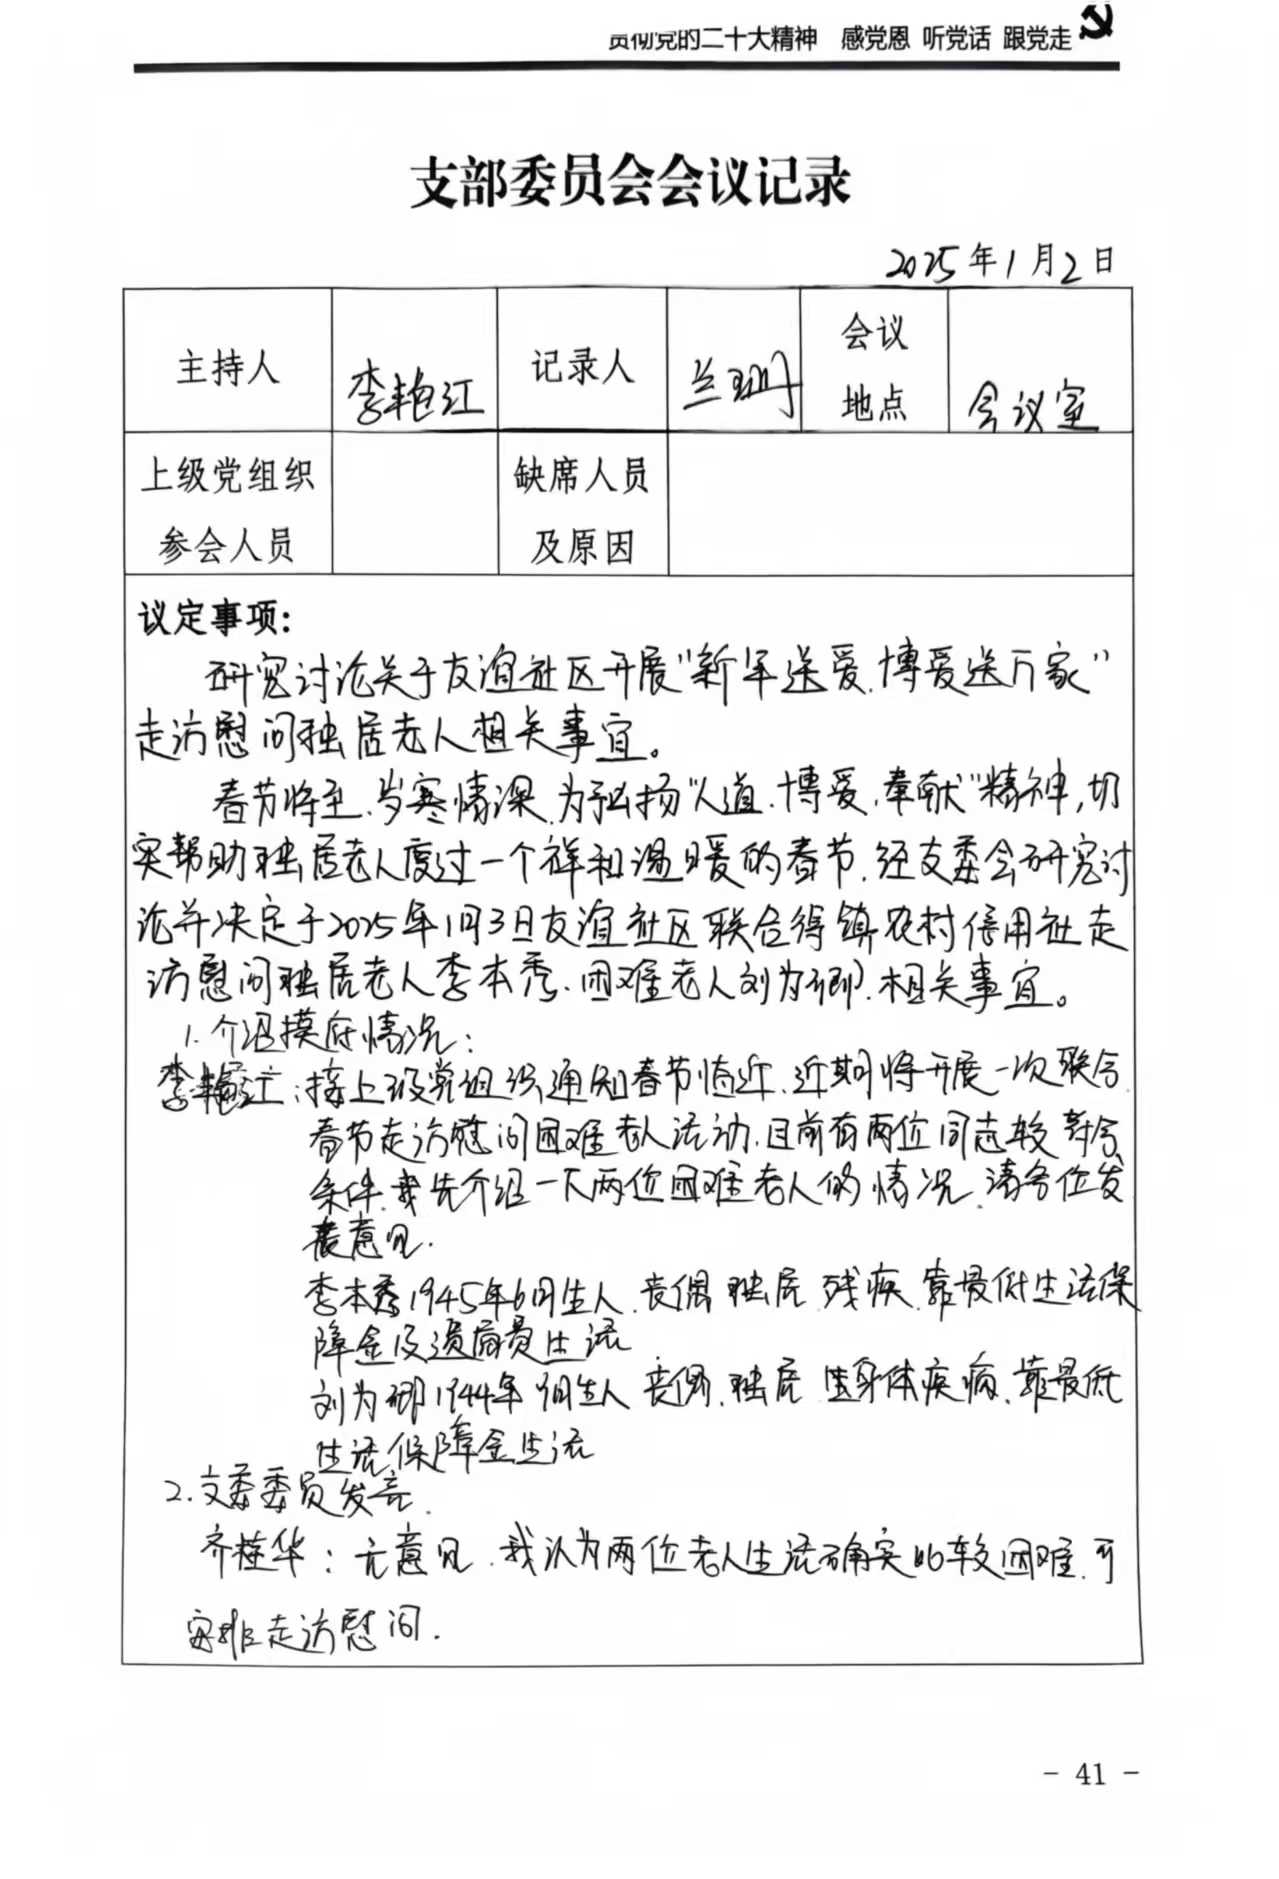 贯彻党的二十大精神 感党恩 听党话 跟党走
支部委员会会议记录
2025年1月2日
主持人 李艳江 记录人 兰珊 会议地点 会议室
上级党组织参会人员 缺席人员及原因
议定事项:
研究讨论关于友谊社区开展“新年送爱.博爱送万家”
走访慰问独居老人相关事宜。
春节将至.岁寒情深.为弘扬“人道.博爱.奉献”精神,切
实帮助独居老人度过一个祥和温暖的春节.经支委会研究讨
论并决定于2025年1月3日友谊社区联合得镇农村信用社走
访慰问独居老人李本秀.困难老人刘为卿.相关事宜。
1.介绍摸底情况:
李艳江:接上级党组织通知春节临近.近期将开展一次联合
春节走访慰问困难老人活动.目前有两位同志较符合
条件.我先介绍一下两位困难老人的情况.请各位发
表意见.
李本秀1945年6月生人.丧偶 独居 残疾.靠最低生活保
障金及遗属费生活
刘为卿1944年9月生人 丧偶.独居 身体疾病.靠最低
生活保障金生活
2.支委委员发言.
齐桂华:无意见.我认为两位老人生活确实比较困难.可
安排走访慰问.
- 41 -